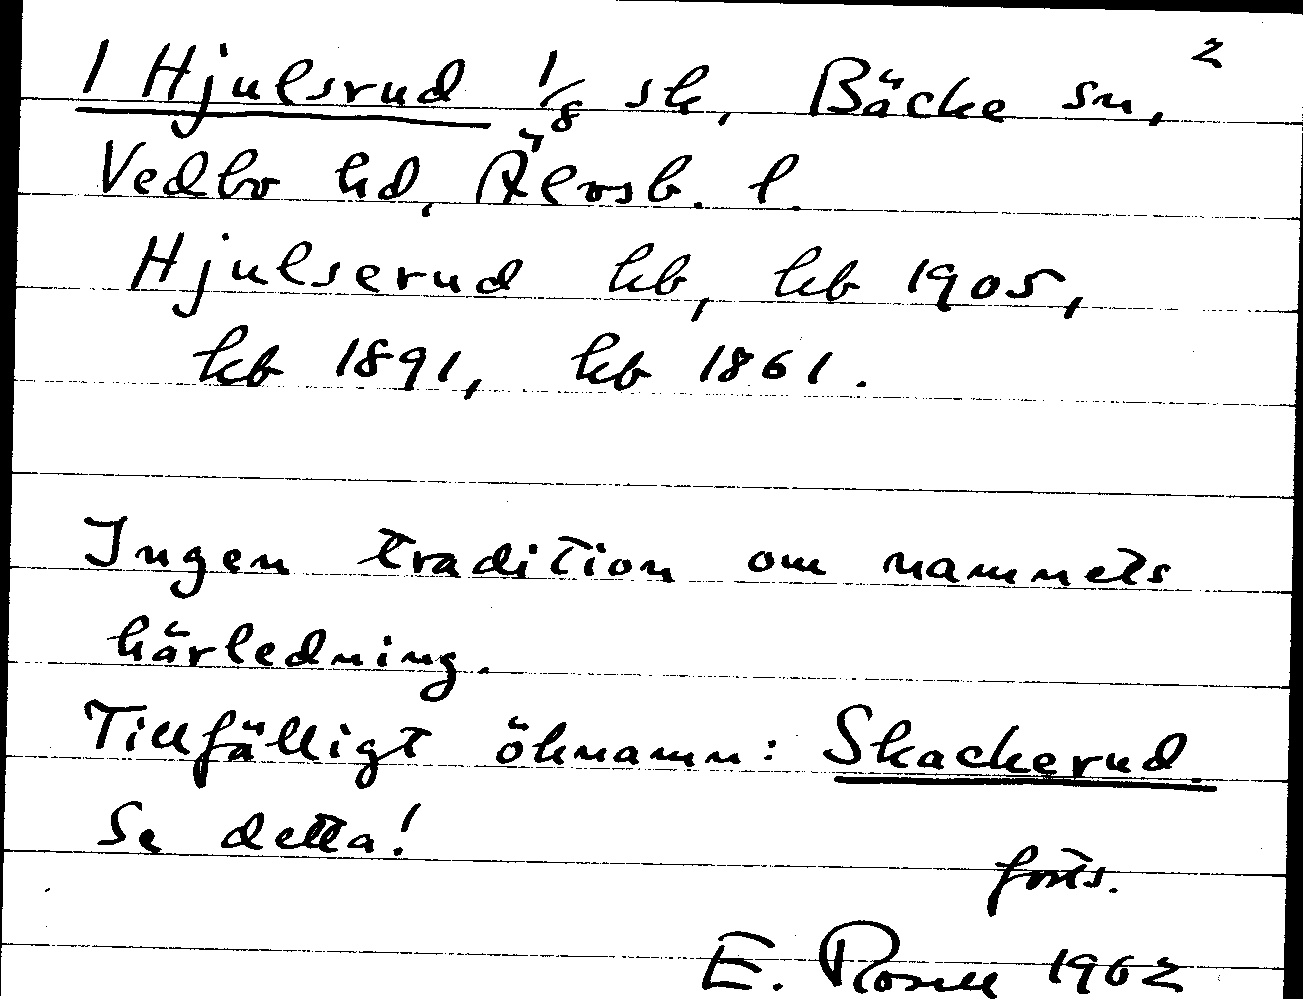 2
1 Hjulsrud 1/8 sk, Bäcke sn,
Vedbo hd, Älvsb. l.
Hjulserud kb, hb 1905,
hb 1891, hb 1861.
Ingen tradition om namnets
härledning.
Tillfälligt öknamn: Skackerud.
Se detta!
forts.
E. Rosell 1962